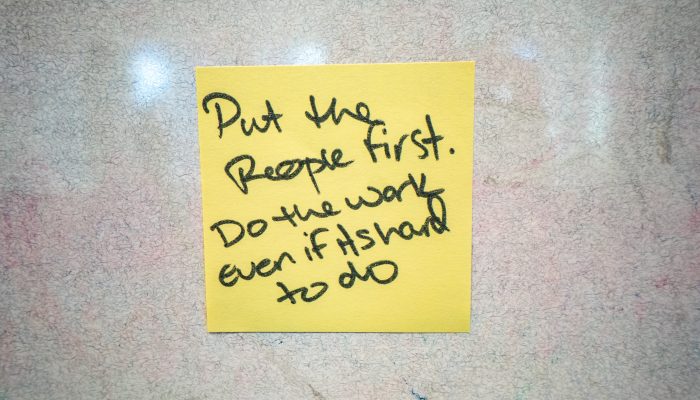 Put the
People first.
Do the work
even if its hard
to do